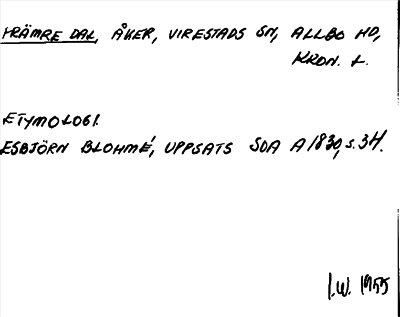 FRÄMRE DAL, ÅKER, VIRESTADS SN, ALLBO HD,
KRON. L.
ETYMOLOGI.
ESBJÖRN BLOHMÉ, UPPSATS SOA A 1830, S. 34.
I.W. 1955